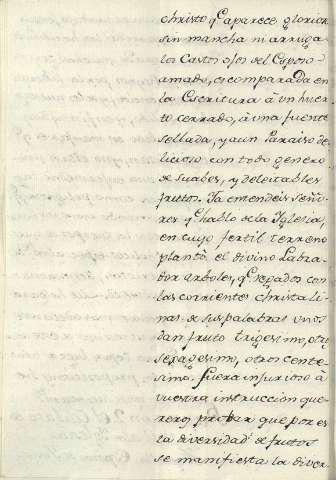 christo q.e aparece glorios
sin mancha ni arruga
los Castos ojos del Esposo
amado, es comparada en
la Escritura â vn huer
to cerrado, â vna fuente
sellada, y aun Paraiso de
licioso con todo genero
de suabes, y deleitables
frutos. Ya entendeis seño
res q.e hablo de la Yglesia,
en cuyo fertil terreno
plantó el divino Labra
dor arboles, q.e regados con
las corrientes christali
nas de sus palabras vnos
dan fruto trigesimo, otros
sexagesimo, otros cente
simo. fuera injurioso â
vuestra instruccion que
rer probar que por es
ta diversidad de frutos
se manifiesta la diver